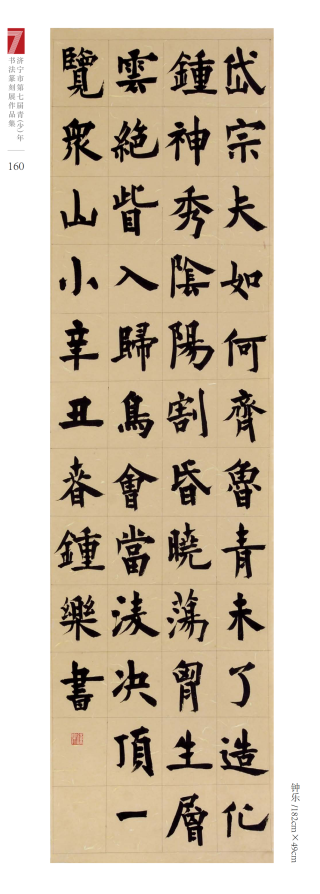 7
济宁市第七届青(少)年
书法篆刻展作品集
160
岱宗夫如何齊魯青未了造化
鍾神秀陰陽割昏曉蕩胷生層
雲絶眥入歸鳥會當淩决頂一
覽衆山小辛丑春鍾樂書
钟乐/182cm×49cm